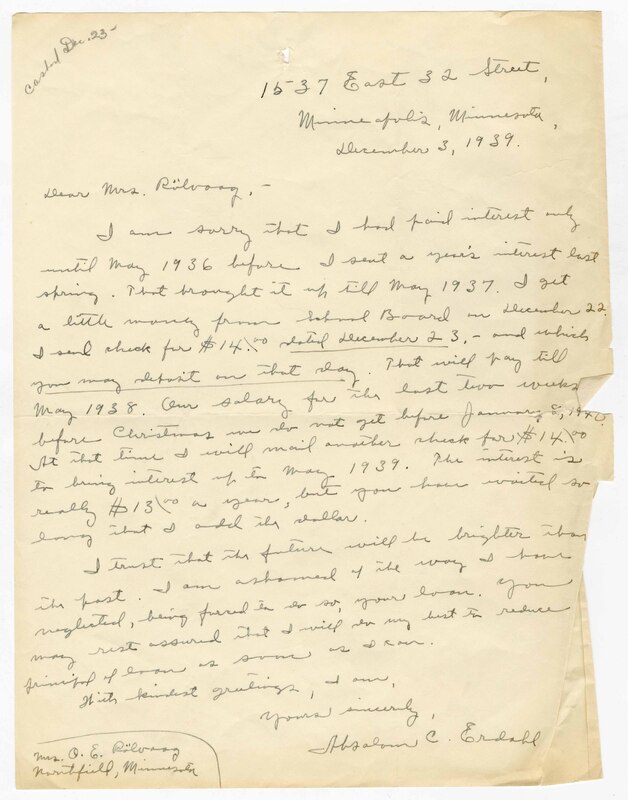 Cashed Dec. 23-
1537 East 32 Street,
Minneapolis, Minnesota,
December 3, 1939.
Dear Mrs. Rölvaag,-
I am sorry that I had paid interest only
until May 1936 before I sent a year's interest last
spring. That brought it up till May 1937. I get
a little money from School Board on December 22.
I send check for $14.00 dated December 23,- and which
you may deposit on that day. That will pay till
May 1938. Our salary for the last two weeks
before Christmas we do not get before January 8, 1940.
At that time I will mail another check for $14.00
to bring interest up to May 1939. The interest is
really $13.00 a year, but you have waited so
long that I add the dollar.
I trust that the future will be brighter than
the past. I am ashamed of the way I have
neglected, being forced to do so, your loan. You
may rest assured that I will do my best to reduce
principal of loan as soon as I can.
With kindest greetings, I am,
Yours sincerely,
Absalom C. Erdahl
Mrs. O. E. Rölvaag
Northfield, Minnesota